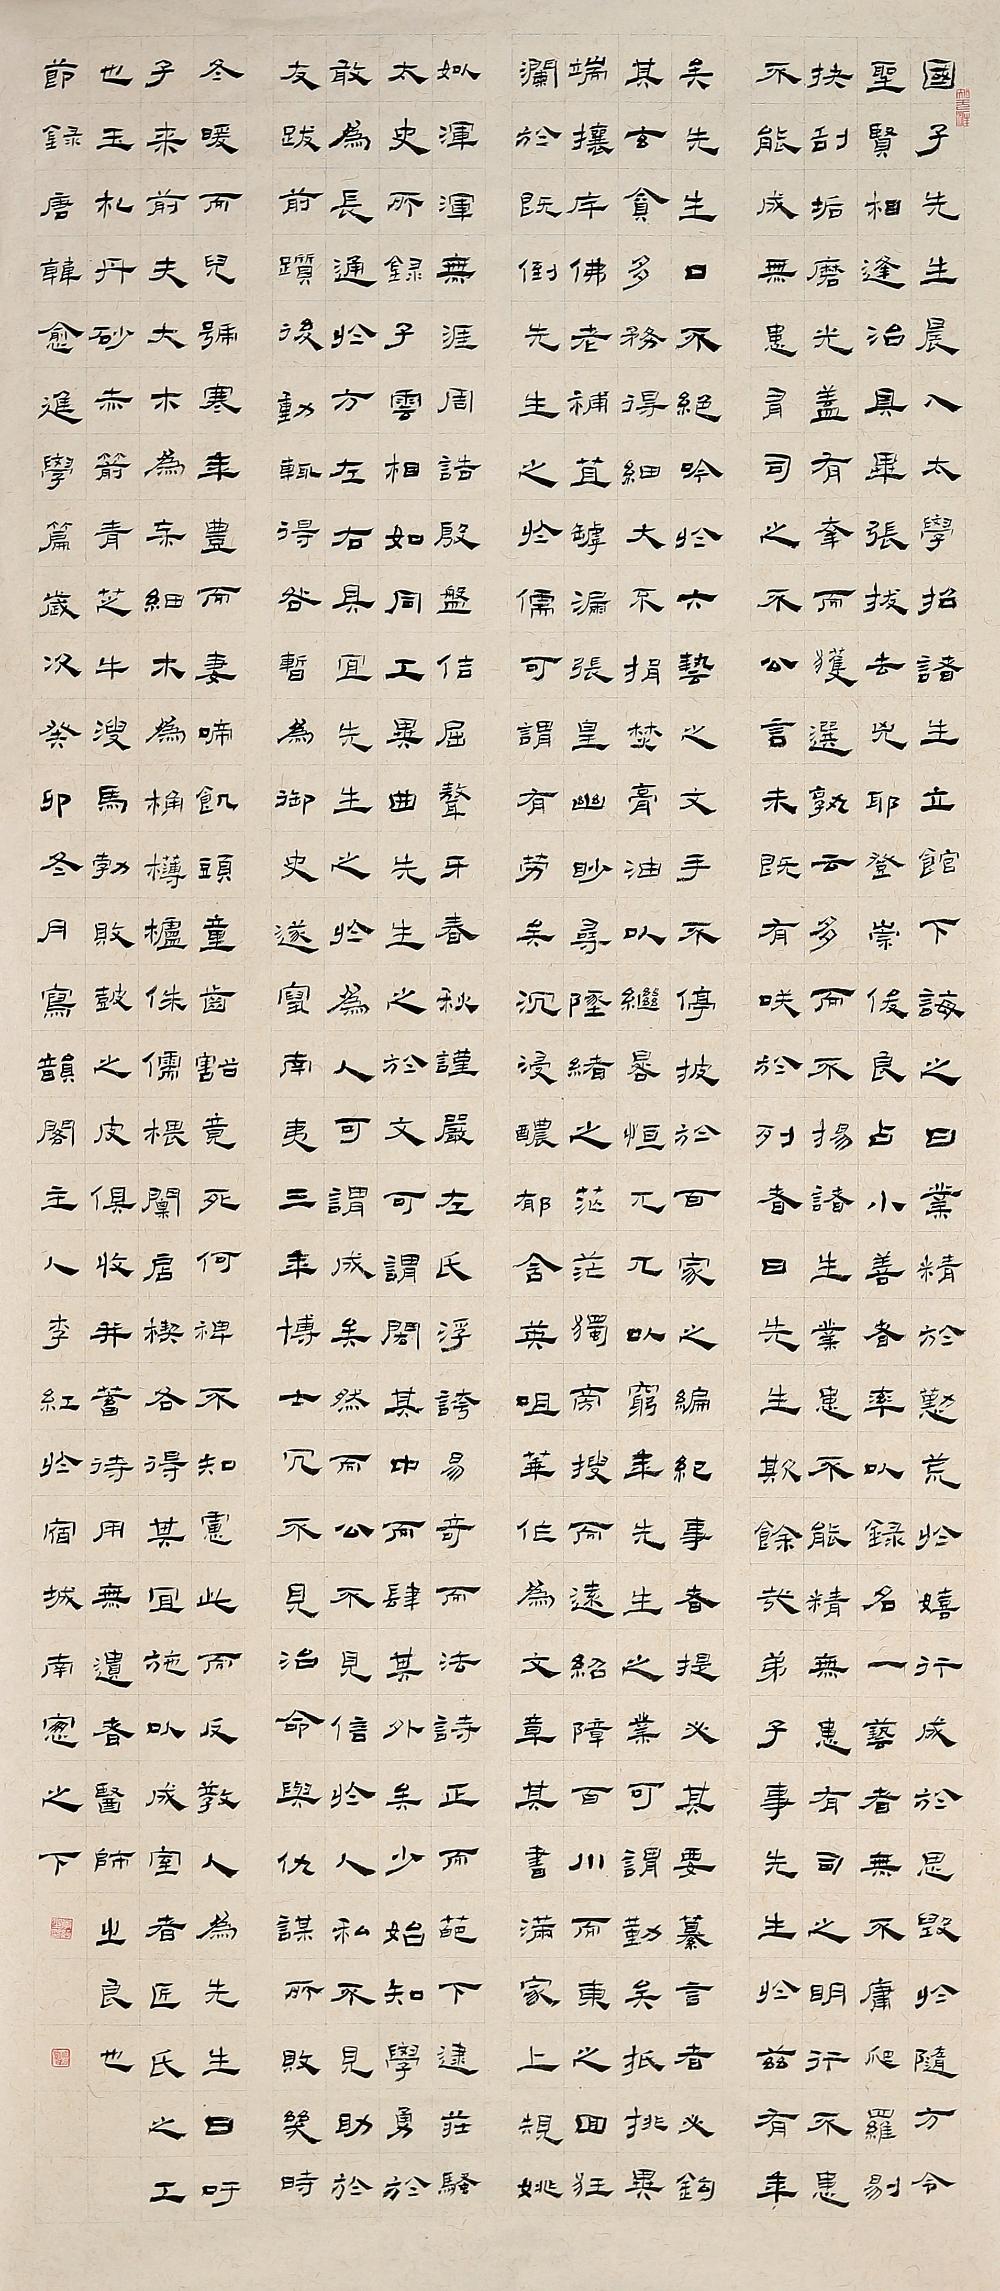 國子先生晨入太學招諸生立館下誨之曰業精於勤荒於嬉行成於思毀於隨方今
聖賢相逢治具畢張拔去兇耶登崇俊良占小善者率以錄名一藝者無不庸爬羅剔
抉刮垢磨光蓋有幸而獲選孰云多而不揚諸生業患不能精無患有司之明行不患
不能成無患有司之不公言未既有咲於列者曰先生欺餘哉弟子事先生於茲有年
矣先生口不絕吟於六藝之文手不停披於百家之編紀事者提必其要纂言者必鈎
其玄貪多務得細大不捐焚膏油以繼晷恒兀兀以窮年先生之業可謂勤矣抵排異
端攘斥佛老補苴罅漏張皇幽眇尋墜緒之茫茫獨旁搜而遠紹障百川而東之回狂
瀾於既倒先生之於儒可謂有勞矣沉浸醲郁含英咀華作為文章其書滿家上規姚
姒渾渾無涯周誥殷盤佶屈聱牙春秋謹嚴左氏浮誇易奇而法詩正而葩下逮莊騷
太史所錄子雲相如同工異曲先生之於文可謂閎其中而肆其外矣少始知學勇於
敢為長通於方左右具宜先生之於為人可謂成矣然而公不見信於人私不見助於
友跋前躓後動輒得咎暫為御史遂竄南夷三年博士冗不見治命與仇謀所敗幾時
冬暖而兒號寒年豐而妻啼飢頭童齒豁竟死何裨不知慮此而反教人為先生曰吁
子來前夫大木為杗細木為桷欂櫨侏儒椳闑扂楔各得其宜施以成室者匠氏之工
也玉札丹砂赤箭青芝牛溲馬勃敗鼓之皮俱收并蓄待用無遺者醫師之良也
節錄唐韓愈進學篇歲次癸卯冬月寫韻閣主人李紅於宿城南窗之下